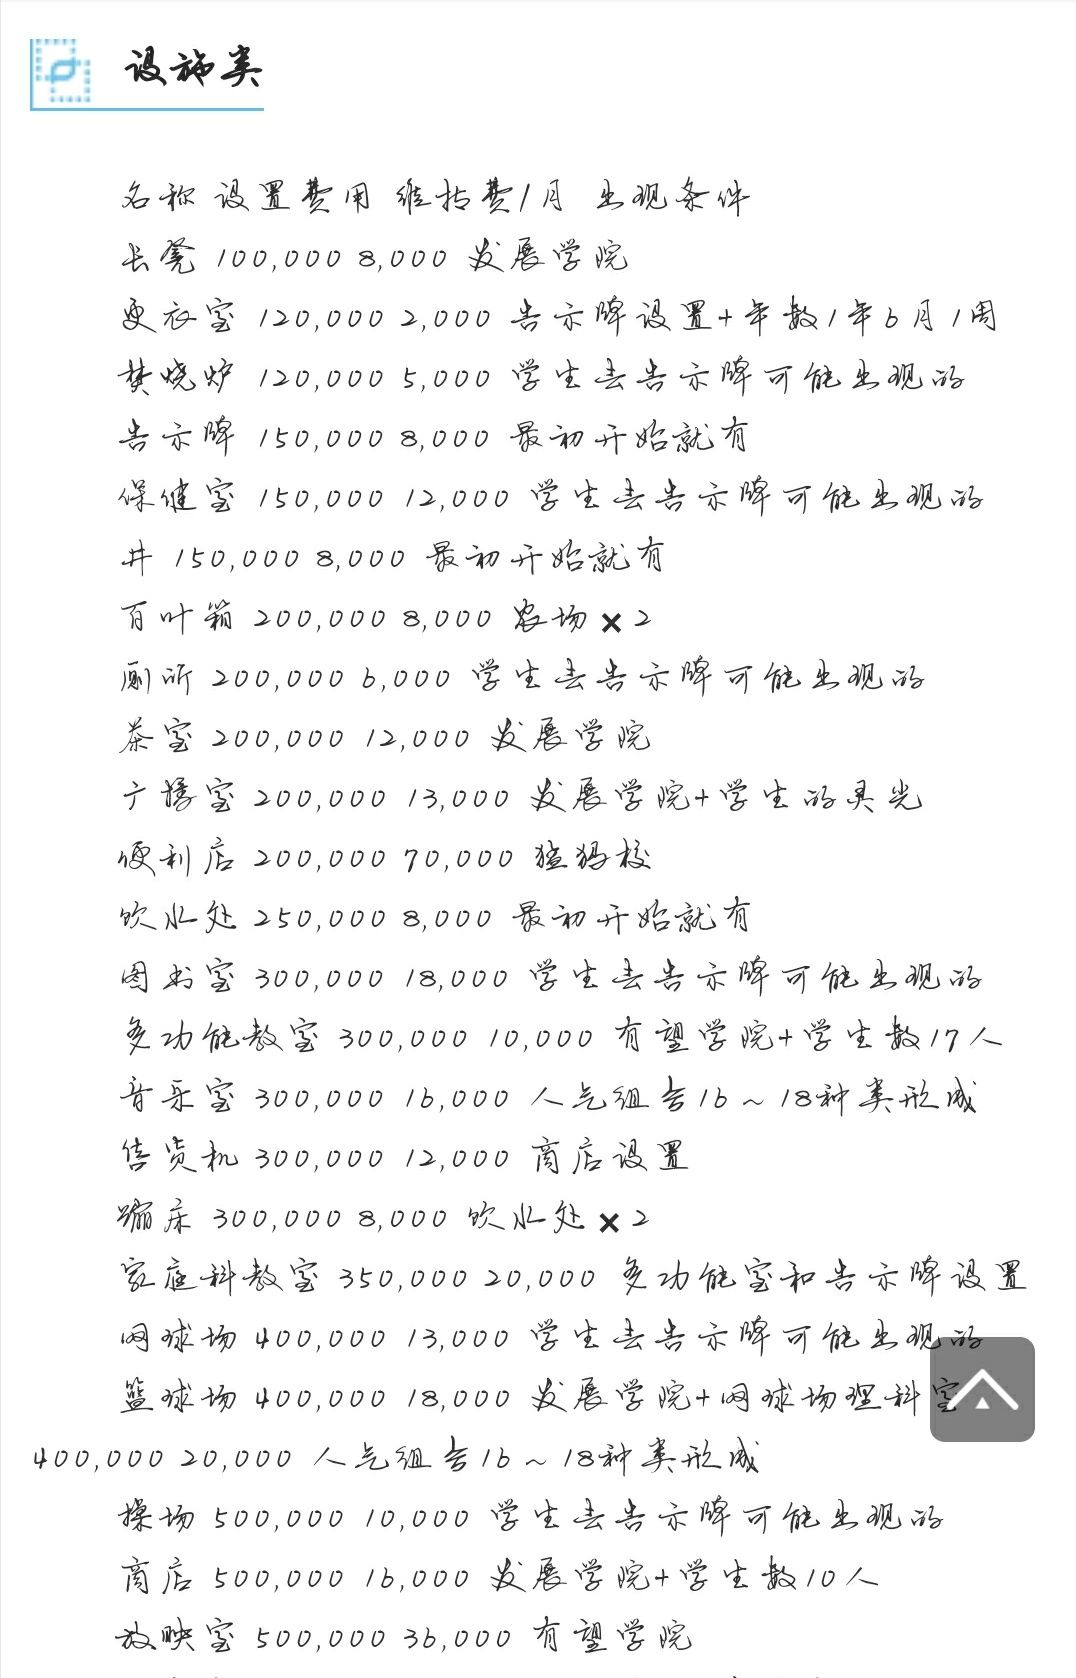 设施类
名称 设置费用 维持费/月 出现条件
长凳 100,000 8,000 发展学院
更衣室 120,000 2,000 告示牌设置+年数1年6月1周
焚烧炉 120,000 5,000 学生去告示牌可能出现的
告示牌 150,000 8,000 最初开始就有
保健室 150,000 12,000 学生去告示牌可能出现的
井 150,000 8,000 最初开始就有
百叶箱 200,000 8,000 农场×2
厕所 200,000 6,000 学生去告示牌可能出现的
茶室 200,000 12,000 发展学院
广播室 200,000 13,000 发展学院+学生的具光
便利店 200,000 70,000 猛犸校
饮水处 250,000 8,000 最初开始就有
图书室 300,000 18,000 学生去告示牌可能出现的
多功能教室 300,000 10,000 有望学院+学生数17人
音乐室 300,000 16,000 人气组合16～18种类形成
售货机 300,000 12,000 商店设置
蹦床 300,000 8,000 饮水处×2
家庭科教室 350,000 20,000 多功能室和告示牌设置
网球场 400,000 13,000 学生去告示牌可能出现的
篮球场 400,000 18,000 发展学院+网球场理科室
400,000 20,000 人气组合16～18种类形成
操场 500,000 10,000 学生去告示牌可能出现的
商店 500,000 16,000 发展学院+学生数10人
放映室 500,000 36,000 有望学院